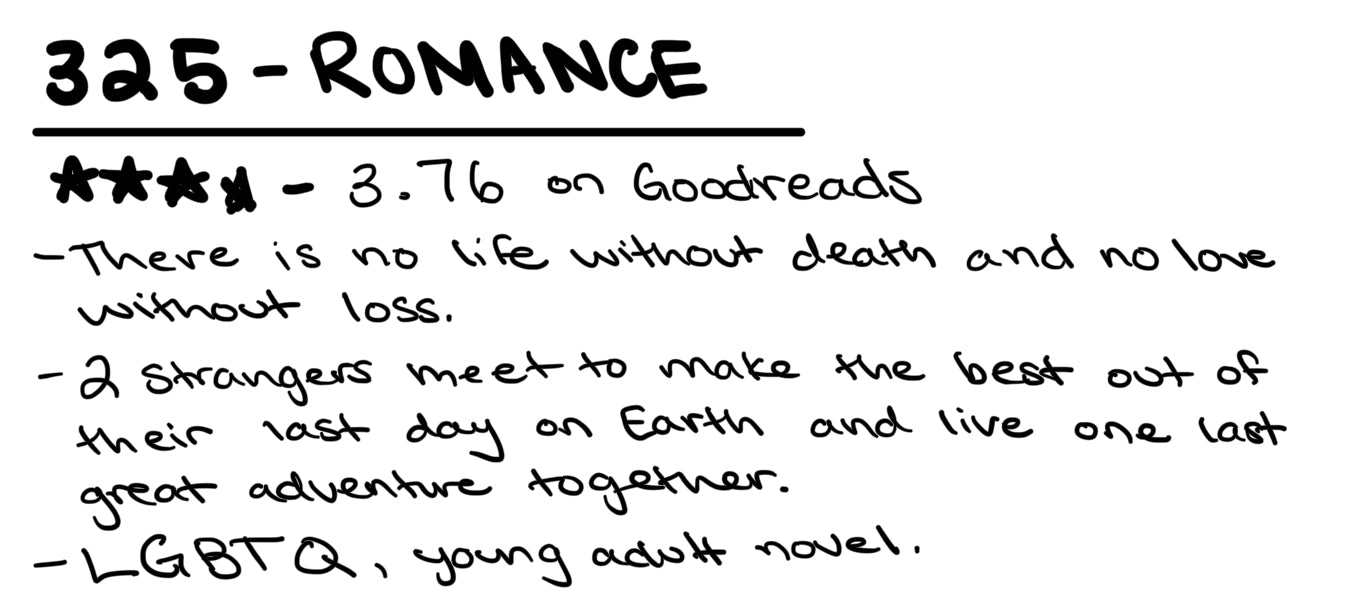 325 - ROMANCE
★★★★ - 3.76 on Goodreads
- There is no life without death and no love
without loss.
- 2 strangers meet to make the best out of
their last day on Earth and live one last
great adventure together.
- LGBTQ, young adult novel.